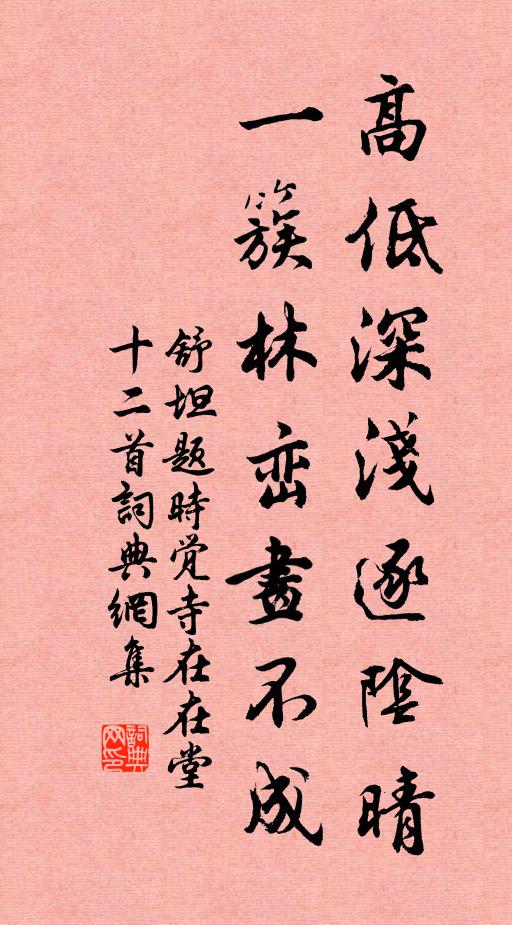 高低深淺逐陰晴
一簇林巒畫不成
舒坦題時觉寺在在堂
十二首詞典網集
詞典
网印